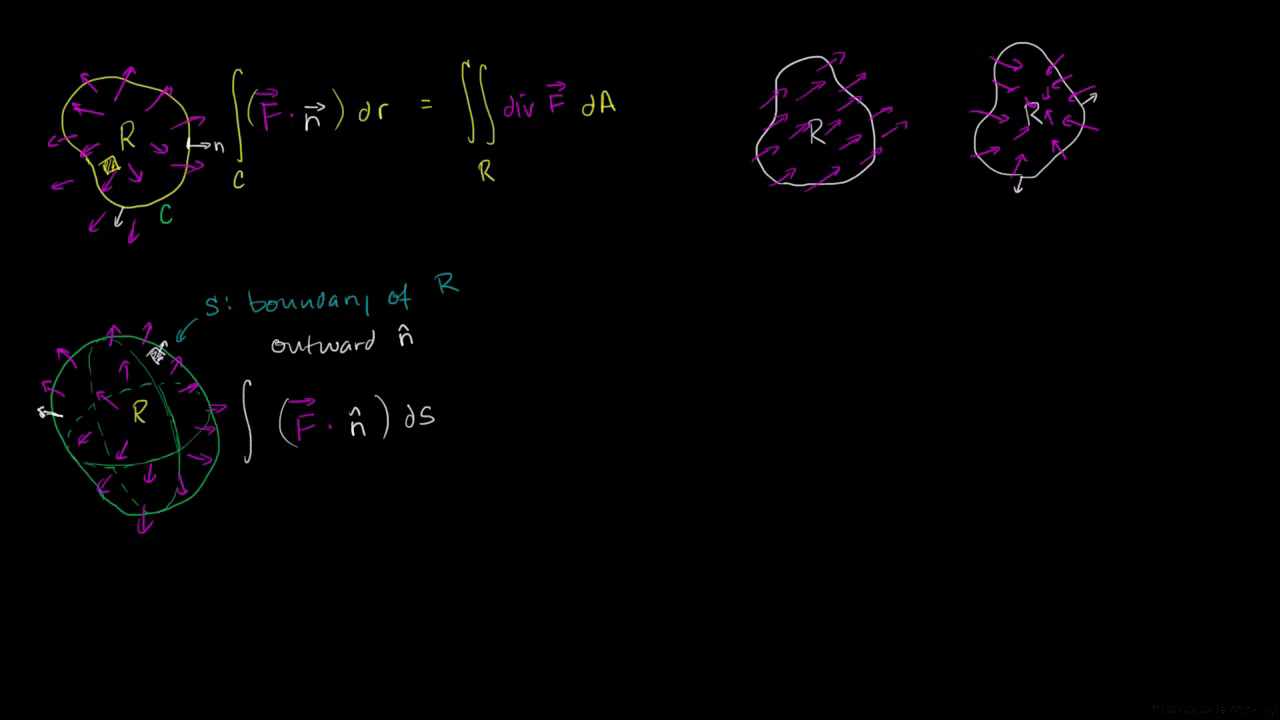 R
n
C
∫_C (F⃗ · n⃗) dr = ∬_R div F⃗ dA
R
R
S: boundary of R
outward n̂
R
∫ (F⃗ · n̂) dS